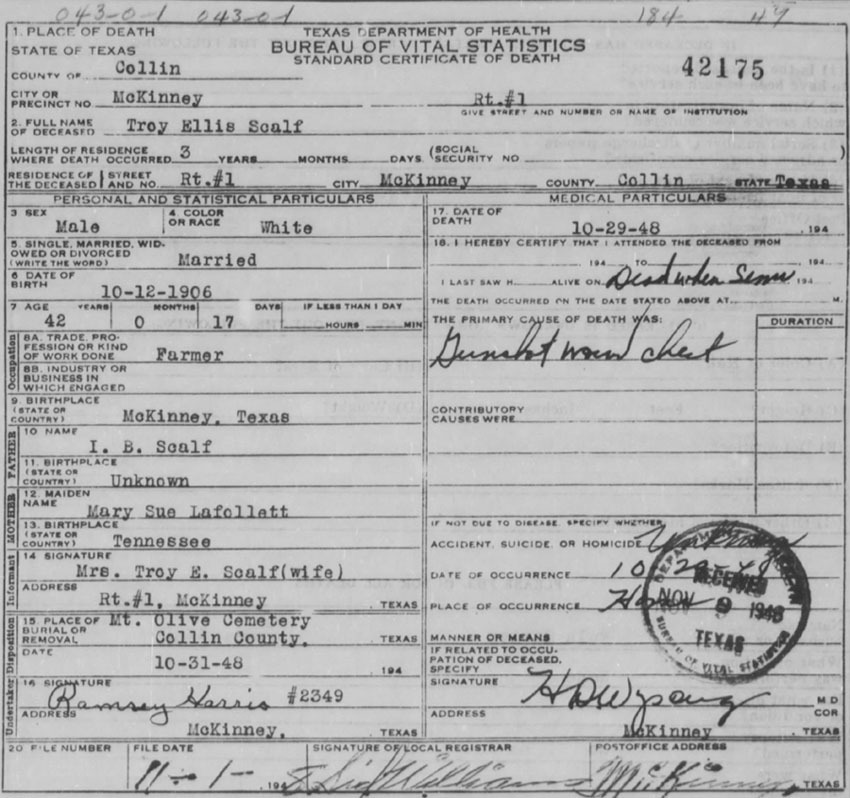 043-0-1 043-0-1 184 49
1. PLACE OF DEATH
STATE OF TEXAS
COUNTY OF Collin
TEXAS DEPARTMENT OF HEALTH
BUREAU OF VITAL STATISTICS
STANDARD CERTIFICATE OF DEATH
42175
CITY OR PRECINCT NO McKinney Rt.#1
GIVE STREET AND NUMBER OR NAME OF INSTITUTION
2. FULL NAME OF DECEASED Troy Ellis Scalf
LENGTH OF RESIDENCE WHERE DEATH OCCURRED 3 YEARS MONTHS DAYS (SOCIAL SECURITY NO )
RESIDENCE OF THE DECEASED STREET AND NO. Rt.#1 CITY McKinney COUNTY Collin STATE Texas
PERSONAL AND STATISTICAL PARTICULARS
3 SEX Male
4. COLOR OR RACE White
5. SINGLE, MARRIED, WIDOWED OR DIVORCED (WRITE THE WORD) Married
6 DATE OF BIRTH 10-12-1906
7 AGE YEARS MONTHS DAYS IF LESS THAN 1 DAY
42 0 17 HOURS MIN
Occupation
8A. TRADE, PROFESSION OR KIND OF WORK DONE Farmer
8B. INDUSTRY OR BUSINESS IN WHICH ENGAGED
9. BIRTHPLACE (STATE OR COUNTRY) McKinney, Texas
FATHER
10 NAME I. B. Scalf
11. BIRTHPLACE (STATE OR COUNTRY) Unknown
MOTHER
12. MAIDEN NAME Mary Sue Lafollett
13. BIRTHPLACE (STATE OR COUNTRY) Tennessee
Informant
14 SIGNATURE Mrs. Troy E. Scalf(wife)
ADDRESS Rt.#1, McKinney , TEXAS
Disposition
15 PLACE OF BURIAL OR REMOVAL Mt. Olive Cemetery
Collin County, TEXAS
DATE 10-31-48 194
Undertaker
16 SIGNATURE Ramsey Harris #2349
ADDRESS McKinney, TEXAS
MEDICAL PARTICULARS
17. DATE OF DEATH 10-29-48 , 194
18. I HEREBY CERTIFY THAT I ATTENDED THE DECEASED FROM
194 TO , 194
I LAST SAW H ALIVE ON Dead when Seen 194
THE DEATH OCCURRED ON THE DATE STATED ABOVE AT M.
THE PRIMARY CAUSE OF DEATH WAS: DURATION
Gunshot wound chest
CONTRIBUTORY CAUSES WERE
IF NOT DUE TO DISEASE, SPECIFY WHETHER,
ACCIDENT, SUICIDE, OR HOMICIDE Unknown
DATE OF OCCURRENCE 10-29-48
PLACE OF OCCURRENCE Home
MANNER OR MEANS
IF RELATED TO OCCUPATION OF DECEASED, SPECIFY
DEPARTMENT OF HEALTH
RECEIVED
NOV 9 1948
TEXAS
BUREAU OF VITAL STATISTICS
SIGNATURE M D
ADDRESS McKinney COR , TEXAS
20 FILE NUMBER
FILE DATE 11-1- 194
SIGNATURE OF LOCAL REGISTRAR Williams
POSTOFFICE ADDRESS McKinney, TEXAS